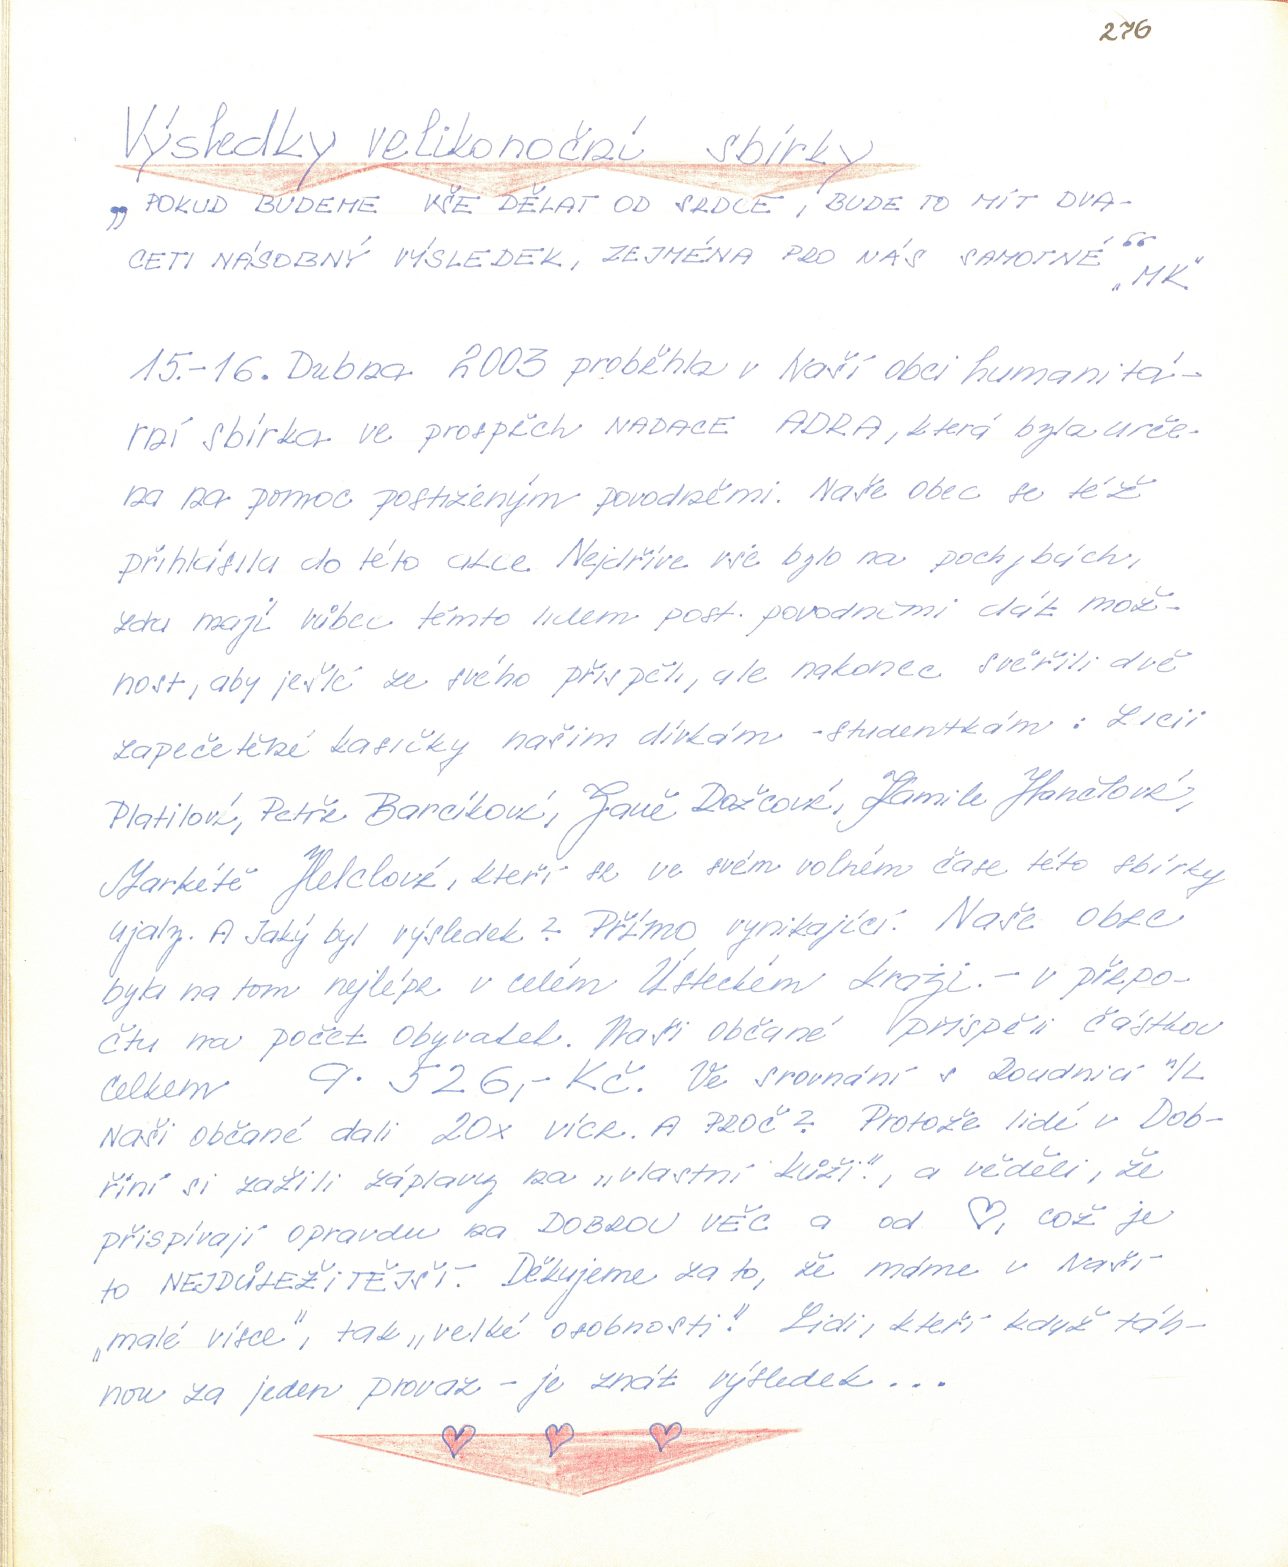 276
Výsledky velikonoční sbírky
„POKUD BUDEME VŠE DĚLAT OD SRDCE, BUDE TO MÍT DVA-
CETI NÁSOBNÝ VÝSLEDEK, ZEJMÉNA PRO NÁS SAMOTNÉ“
„MK“
15.-16. Dubna 2003 proběhla v Naší obci humanitá-
rní sbírka ve prospěch NADACE ADRA, která byla urče-
na na pomoc postiženým povodněmi. Naše obec se též
přihlásila do této akce Nejdříve vše bylo na pochybách,
zda mají vůbec těmto lidem post. povodněmi dát mož-
nost, aby ještě ze svého přispěli, ale nakonec svěřili dvě
zapečetěné kasičky našim dívkám -studentkám: Lucii
Platilové, Petře Barcíkové, Janě Dažcové, Kamile Hančlové,
Markétě Helclové, kteří se ve svém volném čase této sbírky
ujaly. A Jaký byl výsledek? Přímo vynikající. Naše obec
byla na tom nejlépe v celém Ústeckém kraji. - v přepo-
čtu na počet obyvatel. Naši občané přispěli částkou
celkem 9. 526,- Kč. Ve srovnání s Roudnicí n/L
Naši občané dali 20x více. A PROČ? Protože lidé v Dob-
říni si zažili záplavy na „vlastní kůži“, a věděli, že
přispívají opravdu na DOBROU VĚC a od ♡, což je
to NEJDŮLEŽITĚJŠÍ. Děkujeme za to, že máme v Naší
„malé vísce“, tak „velké osobnosti.“ Lidi, kteří když táh-
nou za jeden provaz - je znát výsledek...